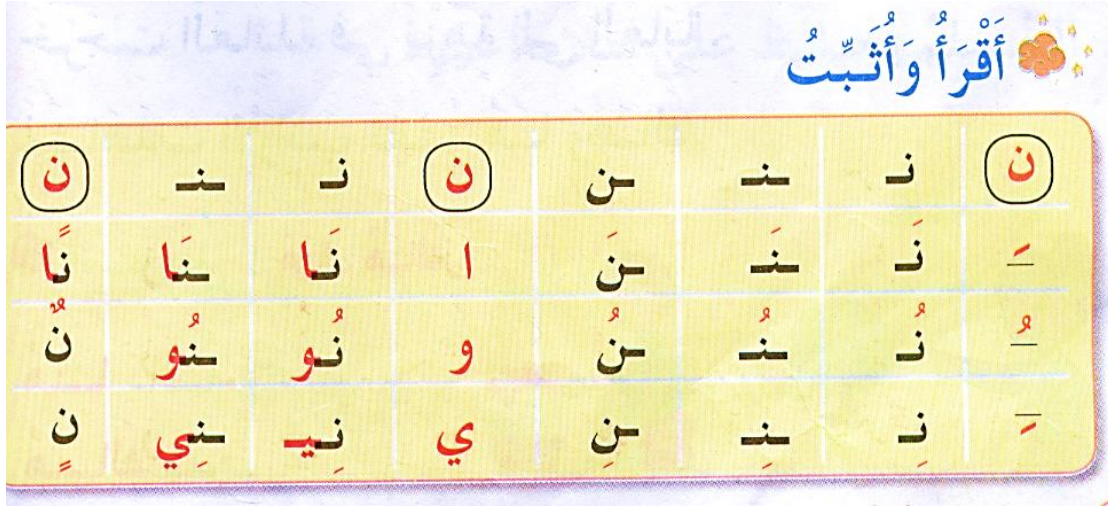 أَقْرَأُ وَأُثَبِّتُ
ن نـ ـنـ ـن ن نـ ـنـ ن
ـَ نَـ ـنَـ ـنَ ا نَـا ـنَا نًا
ـُ نُـ ـنُـ ـنُ و نُـو ـنُو نٌ
ـِ نِـ ـنِـ ـنِ ي نِـيـ ـنِي نٍ